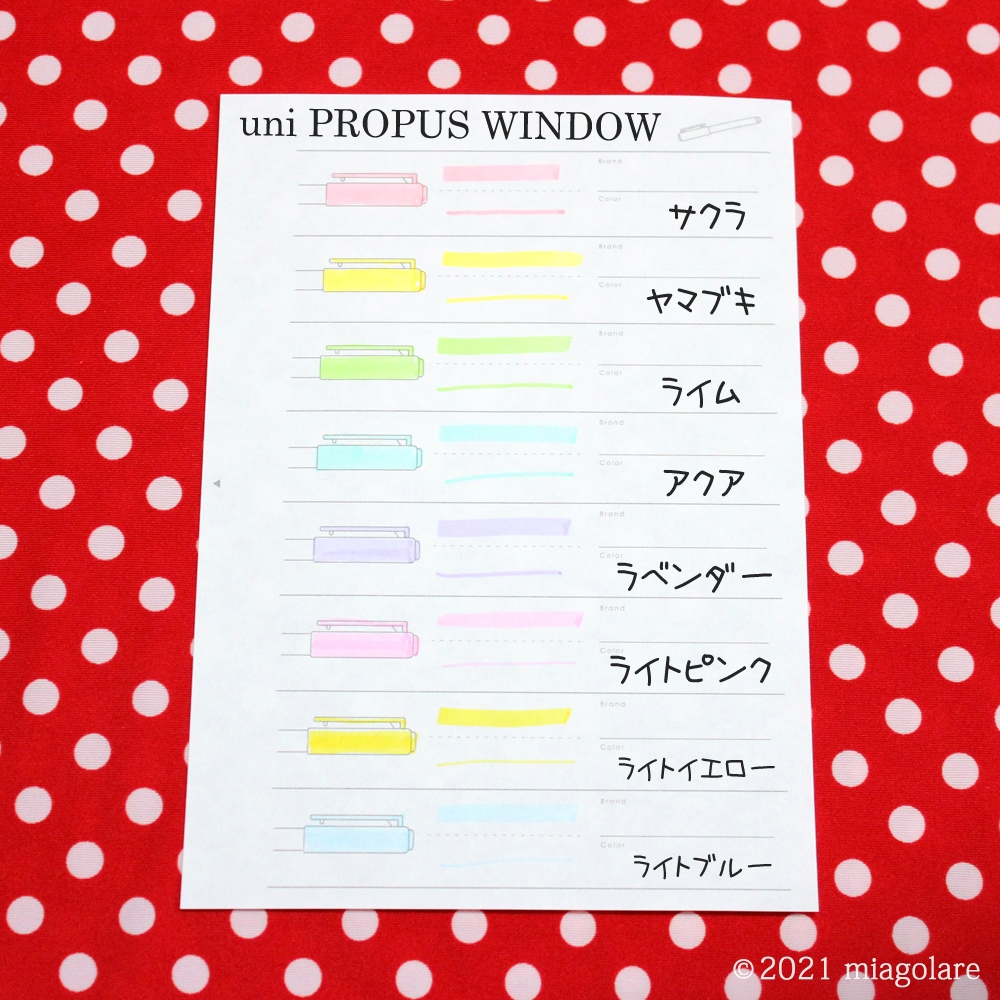 uni PROPUS WINDOW
Brand
Color
サクラ
Brand
Color
ヤマブキ
Brand
Color
ライム
Brand
Color
アクア
Brand
Color
ラベンダー
Brand
Color
ライトピンク
Brand
Color
ライトイエロー
Brand
Color
ライトブルー
©2021 miagolare